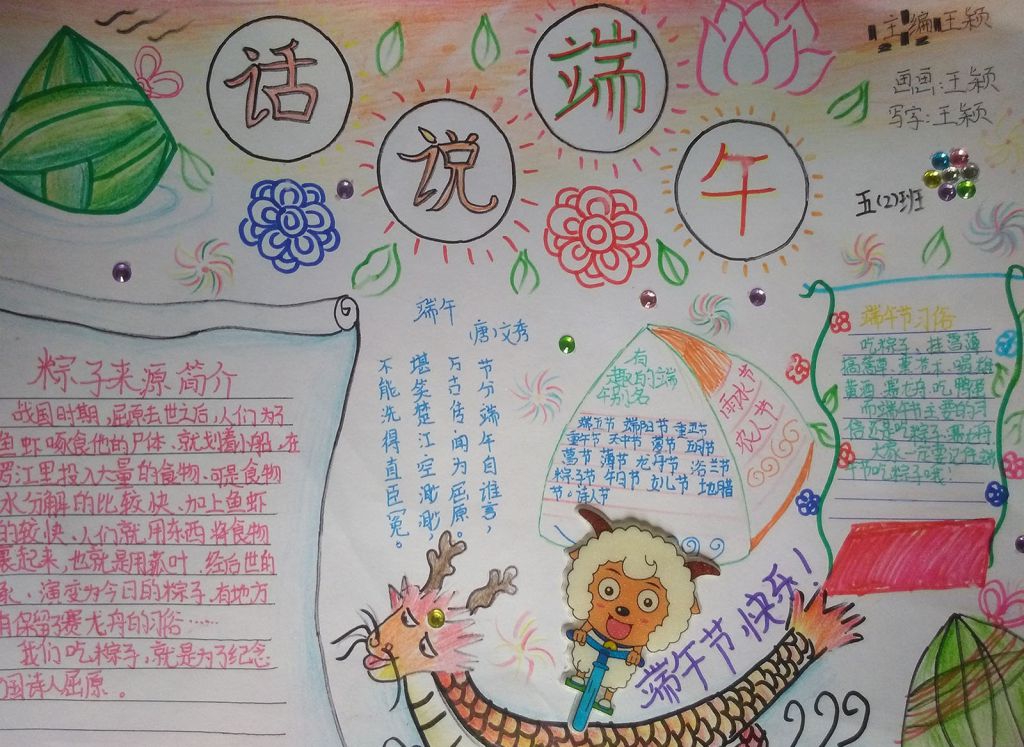 话说端午
主编:王颖
画画:王颖
写字:王颖
五(2)班
粽子来源简介
战国时期,屈原去世之后,人们为了
鱼虾啄食他的尸体.就划着小船.在
罗江里投入大量的食物.可是食物
水分解的比较快、加上鱼虾
的较快.人们就用东西将食物
裹起来,也就是用菰叶.经后世的
演变为今日的粽子.有地方
保留了赛龙舟的习俗……
我们吃粽子,就是为了纪念
国诗人屈原。
端午
唐 文秀
节分端午自谁言,
万古传闻为屈原。
堪笑楚江空渺渺,
不能洗得直臣冤。
有
趣的端
午别名
端五节 端阳节 重五节
重午节 天中节 夏节 五月节
菖节 蒲节 龙舟节 浴兰节
粽子节 午日节 女儿节 地腊
节。诗人节
雨水节
农人节
端午节习俗
吃粽子、挂菖蒲
黄酒.赛龙舟.吃鸭蛋
而端午节主要的习
俗还是吃粽子.赛龙舟
大家一定要记住端
午节吃粽子哦!
端午节快乐!